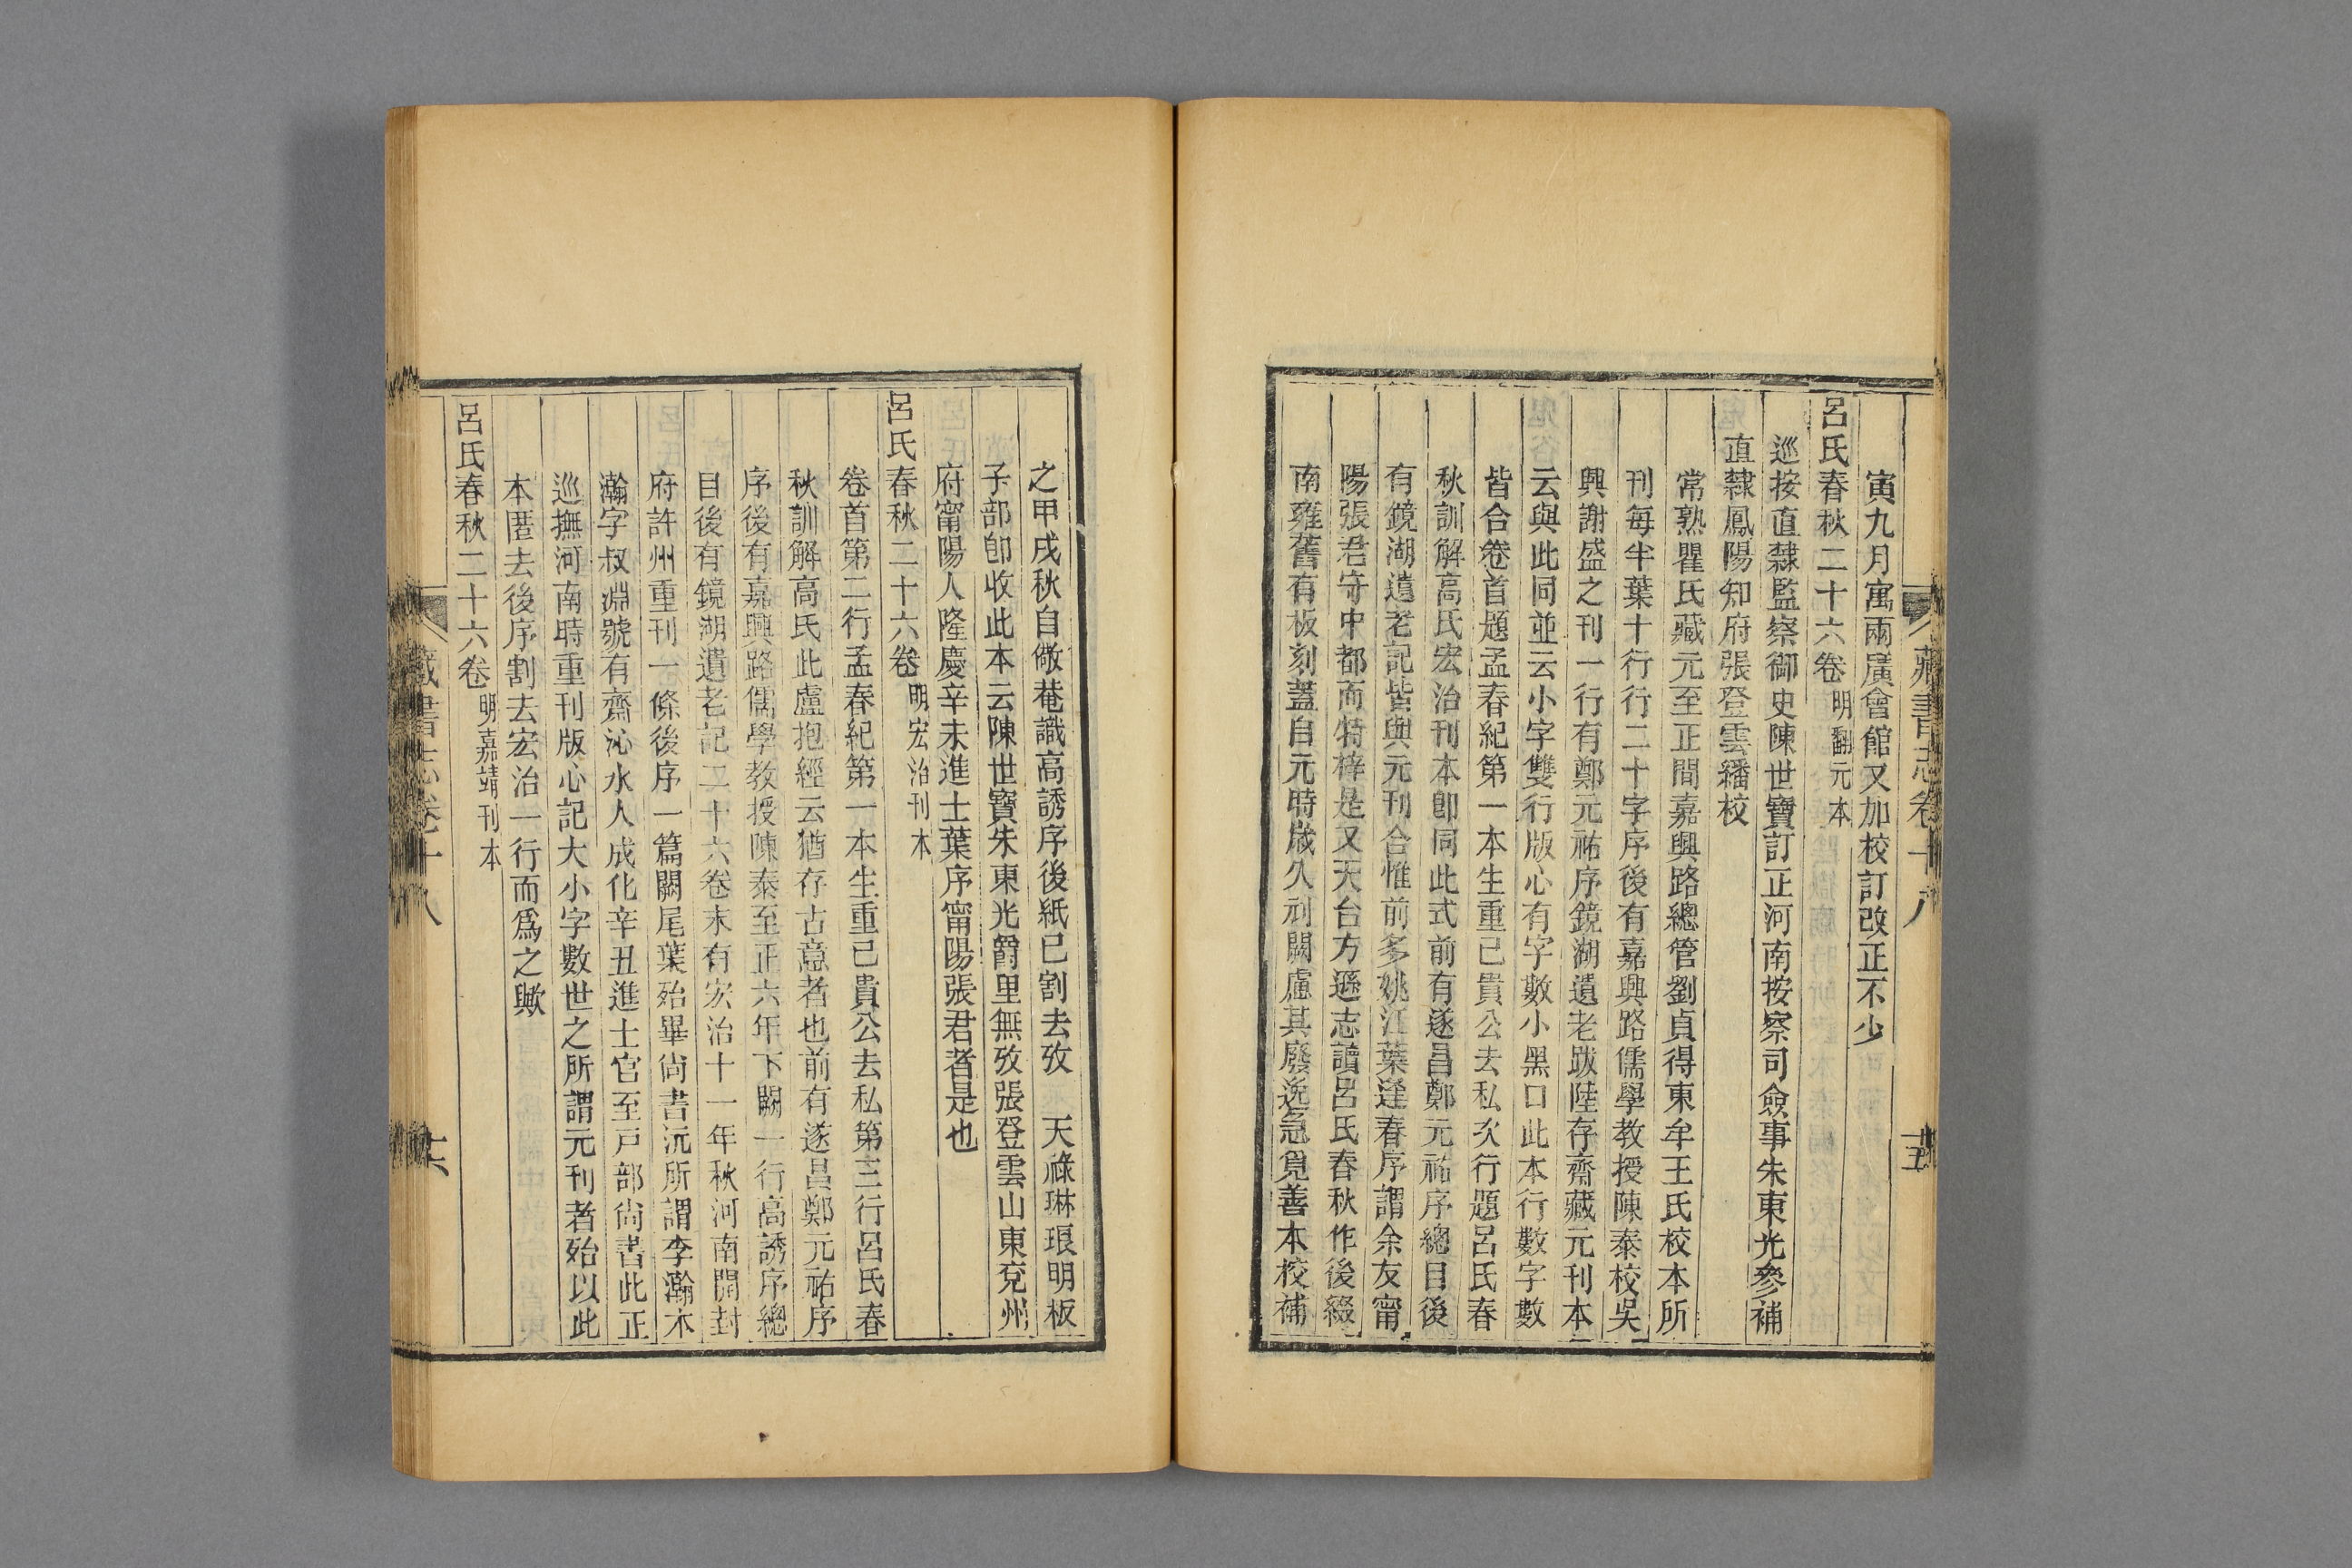 寅九月寓兩廣會館又加校訂改正不少
呂氏春秋二十六卷 明翻元本
巡按直隸監察御史陳世寶訂正河南按察司僉事朱東光參補
直隸鳳陽知府張登雲繙校
常熟瞿氏藏元至正間嘉興路總管劉貞得東牟王氏校本所
刊每半葉十行行二十字序後有嘉興路儒學教授陳泰校吳
興謝盛之刊一行有鄭元祐序鏡湖遺老跋陸存齋藏元刊本
云與此同並云小字雙行版心有字數小黑口此本行數字數
皆合卷首題孟春紀第一本生重己貴公去私次行題呂氏春
秋訓解高氏宏治刊本卽同此式前有遂昌鄭元祐序總目後
有鏡湖遺老記皆與元刊合惟前多姚江葉逢春序謂余友甯
陽張君守中都而特梓是又天台方遜志讀呂氏春秋作後綴
南雍舊有板刻蓋自元時歲久刓闕慮其廢逸急覓善本校補
藏書志卷十八
之甲戌秋自儆菴識高誘序後紙已割去攷 天祿琳琅明板
子部卽收此本云陳世寶朱東光爵里無攷張登雲山東兗州
府甯陽人隆慶辛未進士葉序甯陽張君者是也
呂氏春秋二十六卷 明宏治刊本
卷首第二行孟春紀第一本生重己貴公去私第三行呂氏春
秋訓解高氏此盧抱經云猶存古意者也前有遂昌鄭元祐序
序後有嘉興路儒學教授陳泰至正六年下闕一行高誘序總
目後有鏡湖遺老記二十六卷末有宏治十一年秋河南開封
府許州重刊一條後序一篇闕尾葉殆畢尙書沅所謂李瀚本
瀚字叔淵號有齋沁水人成化辛丑進士官至戸部尙書此正
巡撫河南時重刊版心記大小字數世之所謂元刊者殆以此
本匿去後序割去宏治一行而爲之歟
呂氏春秋二十六卷 明嘉靖刊本
藏書志卷十八